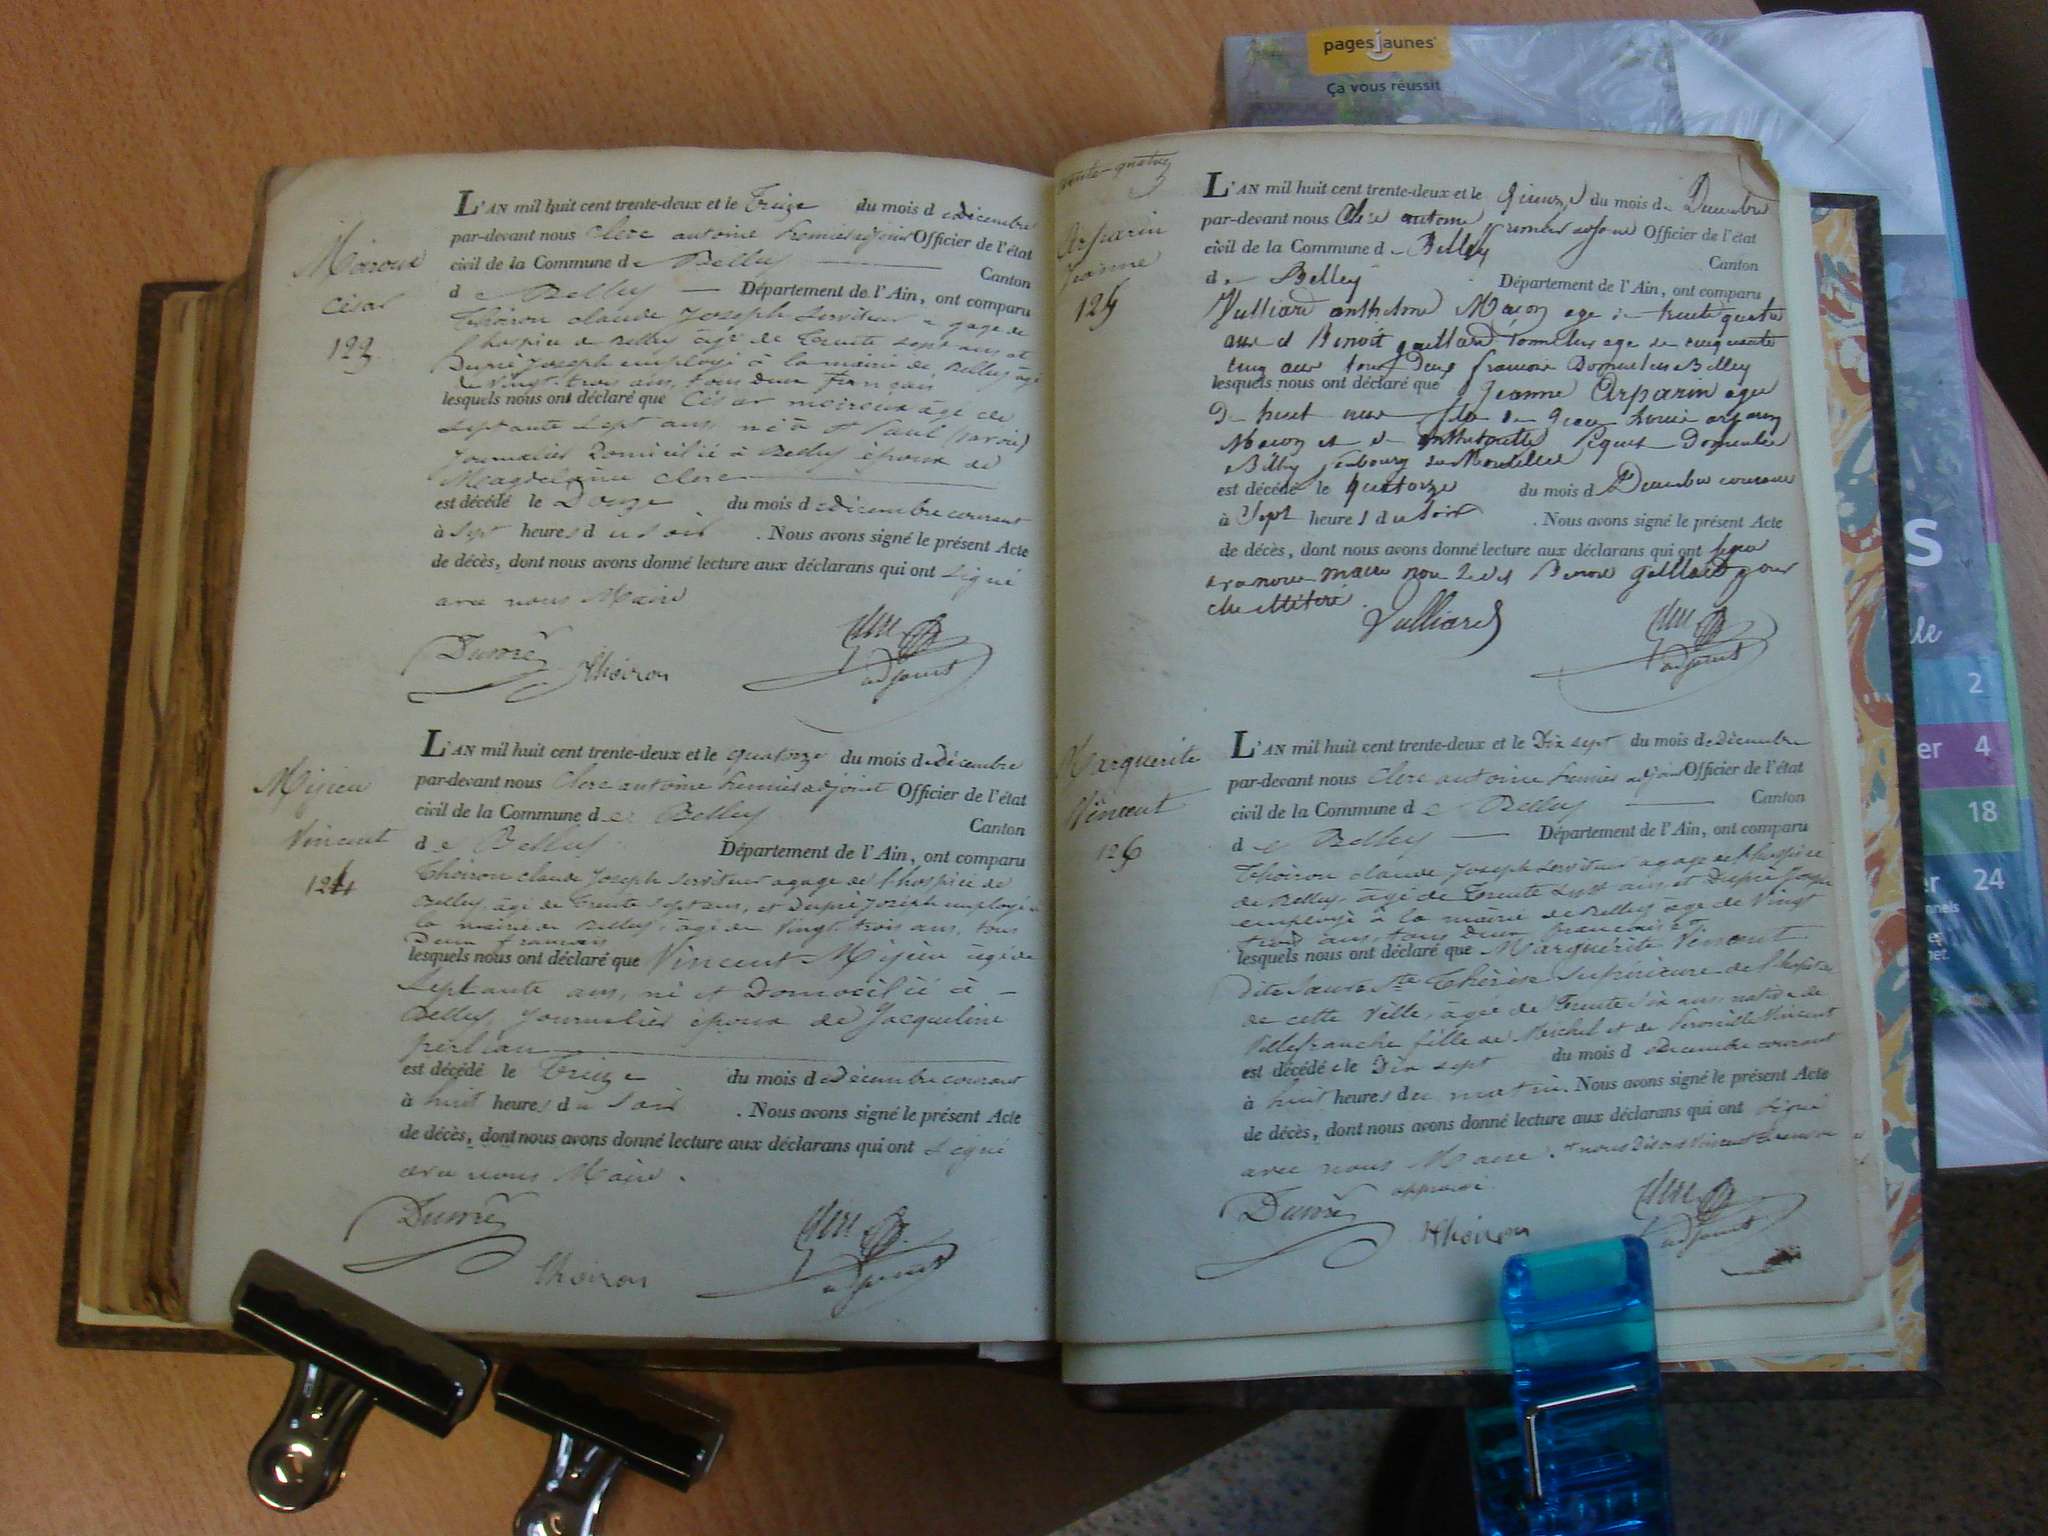 Moiroux
César
123
L'AN mil huit cent trente-deux et le Treize du mois de Décembre
par-devant nous Clerc antoine premier adjoint Officier de l'état
civil de la Commune de Belley Canton
de Belley Département de l'Ain, ont comparu
Thoiron claude Joseph Serviteur a gage de
l'hospice de Belley âgé de Trente sept ans et
Dupré Joseph employé à la mairie de Belley âgé
de Vingt trois ans, tous deux français
lesquels nous ont déclaré que César moiroux âgé de
Septante Sept ans, né à St Paul (Savoie)
Journalier Domicilié à Belley époux de
Magdelaine Clerc
est décédé le Douze du mois de Décembre courant
à Sept heures du soir . Nous avons signé le présent Acte
de décès, dont nous avons donné lecture aux déclarans qui ont signé
avec nous Maire
Dupré Thoiron Clerc
adjoint
Mijieu
Vincent
124
L'AN mil huit cent trente-deux et le quatorze du mois de Décembre
par-devant nous Clerc antoine premier adjoint Officier de l'état
civil de la Commune de Belley
Canton
de Belley Département de l'Ain, ont comparu
Thoiron claude Joseph Serviteur a gage de l'hospice de
Belley, âgé de Trente Sept ans, et Dupré Joseph employé à
la mairie de Belley, âgé de Vingt trois ans, tous
Deux français
lesquels nous ont déclaré que Vincent Mijieu âgé de
Septante ans, né et Domicilié à
Belley Journalier époux de Jacqueline
est décédé le Treize du mois de Décembre courant
à huit heures du soir . Nous avons signé le présent Acte
de décès, dont nous avons donné lecture aux déclarans qui ont signé
avec nous Maire.
Dupré Thoiron Clerc
adjoint
trente-quatre
Arparin
Jeanne
125
L'AN mil huit cent trente-deux et le quinze du mois de Decembre
par-devant nous Clerc antoine premier adjoint Officier de l'état
civil de la Commune de Belley
Canton
de Belley Département de l'Ain, ont comparu
Vulliard anthelme Maçon age de trente quatre
ans et Benoit gaillard age de cinquante
cinq ans tous deux francais Domicilies a Belley
lesquels nous ont déclaré que Jeanne Arparin agee
De huit ans arparin
Macon et de Domicilie
a Belley faubourg
est décédé le quatorze du mois de Decembre courant
à Sept heures du soir . Nous avons signé le présent Acte
de décès, dont nous avons donné lecture aux déclarans qui ont signé
avec nous maire non ledit Benoit gaillard pour
Vulliard Clerc
adjoint
Marguerite
Vincent
126
L'AN mil huit cent trente-deux et le Dix sept du mois de Décembre
par-devant nous Clerc antoine premier adjoint Officier de l'état
civil de la Commune de Belley Canton
de Belley Département de l'Ain, ont comparu
Thoiron claude Joseph Serviteur a gage de l'hospice
de Belley âgé de Trente Sept ans, et Dupré Joseph
employé à la mairie de Belley âgé de Vingt
trois ans, tous deux français
lesquels nous ont déclaré que Marguerite Vincent
dite Soeur Ste Thérèse Supérieure de l'hospice
de cette Ville, âgée de Trente Six ans native de
Villefranche fille de Michel et de Vincent
est décédée le Dix sept du mois de Décembre courant
à huit heures du matin. Nous avons signé le présent Acte
de décès, dont nous avons donné lecture aux déclarans qui ont signé
avec nous Maire.
approuvé
Dupré Thoiron Clerc
adjoint
pagesjaunes
Ça vous réussit
s
2
er 4
18
er 24
nnels
net